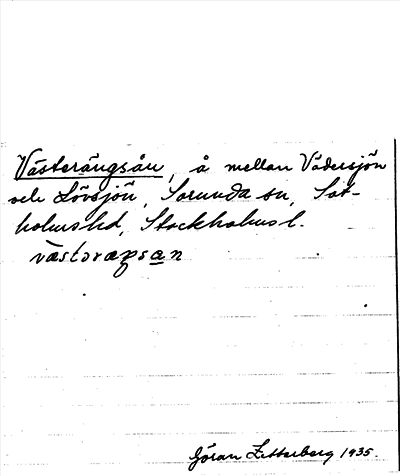 Västerängsån, å mellan Vädersjön
och Lövsjön, Sorunda sn, Sot-
holms hd, Stockholms l.
Göran Zetterberg 1935.